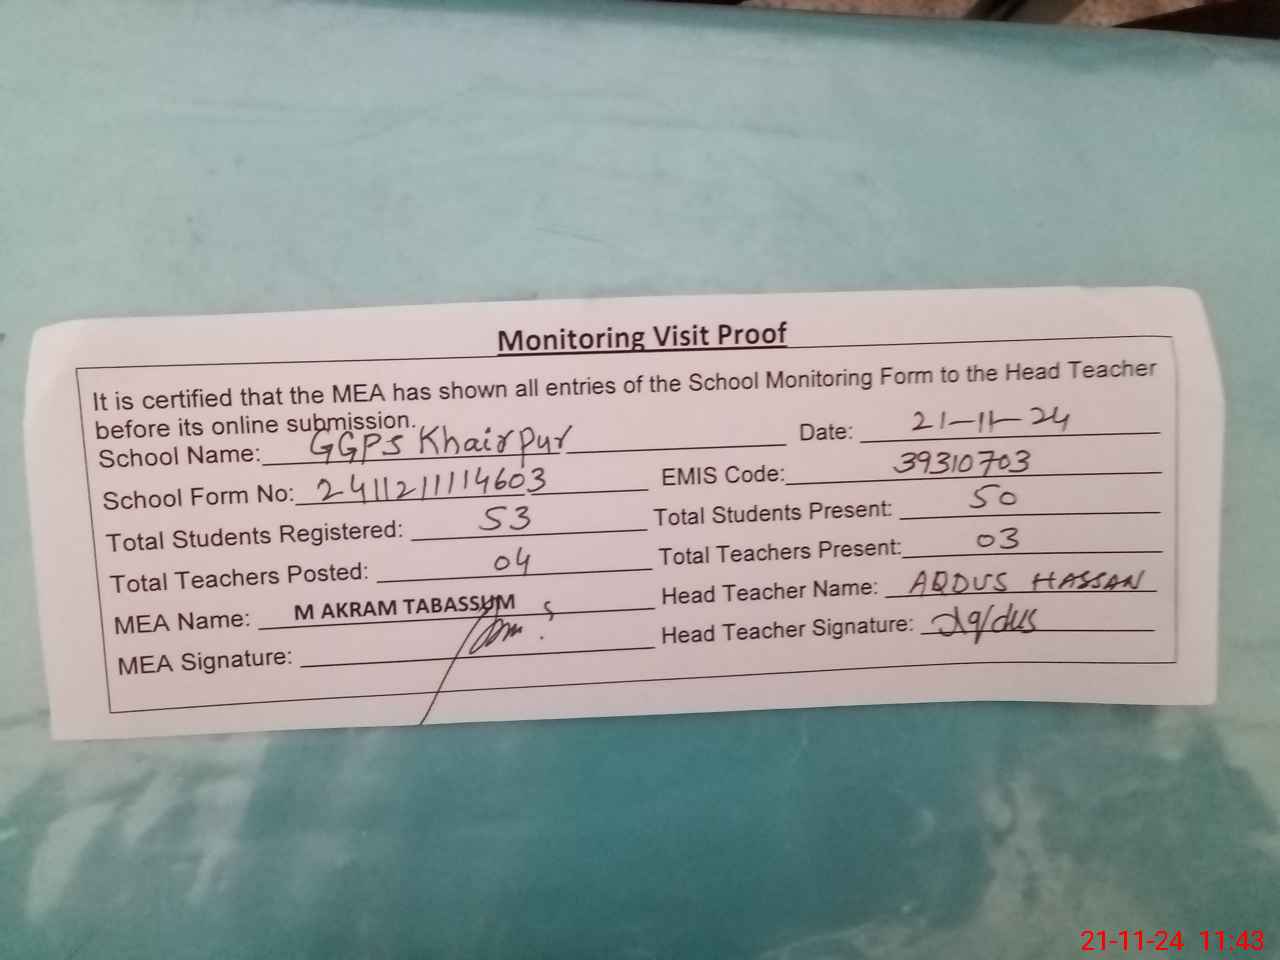 Monitoring Visit Proof
It is certified that the MEA has shown all entries of the School Monitoring Form to the Head Teacher
before its online submission.
School Name: GGPS Khairpur Date: 21-11-24
School Form No: 2411211114603 EMIS Code: 39310703
Total Students Registered: 53 Total Students Present: 50
Total Teachers Posted: 04 Total Teachers Present: 03
MEA Name: M AKRAM TABASSUM Head Teacher Name: AQDUS HASSAN
MEA Signature: Head Teacher Signature: Aqdus
21-11-24 11:43